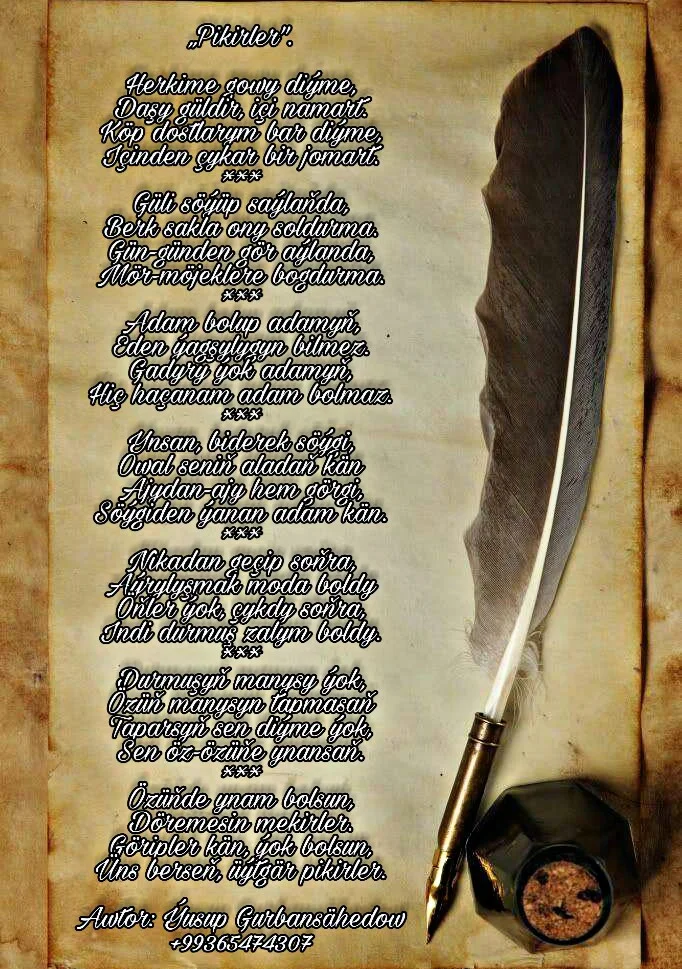 „Pikirler".
Herkime gowy diýme,
Daşy güldir, içi namart.
Köp dostlarym bar diýme,
Içinden çykar bir jomart.
***
Güli söýüp saýlaňda,
Berk sakla ony soldurma.
Gün-günden gör aýlanda,
Mör-möjeklere bogdurma.
***
Adam bolup adamyň,
Eden ýagşylygyn bilmez.
Gadyry ýok adamyň,
Hiç haçanam adam bolmaz.
***
Ynsan, biderek söýgi,
Owal seniň aladaň kän
Ajydan-ajy hem görgi,
Söýgiden ýanan adam kän.
***
Nikadan geçip soňra,
Aýrylyşmak moda boldy
Öňler ýok, çykdy soňra,
Indi durmuş zalym boldy.
***
Durmuşyň manysy ýok,
Özüň manysyn tapmasaň
Taparsyň sen diýme ýok,
Sen öz-özüňe ynansaň.
***
Özüňde ynam bolsun,
Döremesin mekirler.
Göripler kän, ýok bolsun,
Üns berseň, üýtgär pikirler.
Awtor: Ýusup Gurbansähedow
+99365474307